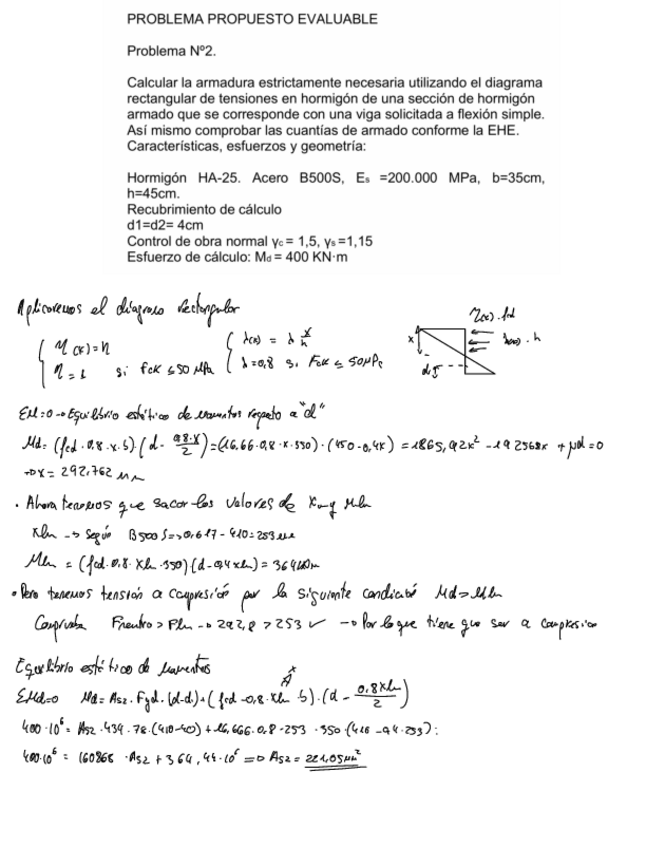 PROBLEMA PROPUESTO EVALUABLE
Problema Nº2.
Calcular la armadura estrictamente necesaria utilizando el diagrama
rectangular de tensiones en hormigón de una sección de hormigón
armado que se corresponde con una viga solicitada a flexión simple.
Así mismo comprobar las cuantías de armado conforme la EHE.
Características, esfuerzos y geometría:
Hormigón HA-25. Acero B500S, Es =200.000 MPa, b=35cm,
h=45cm.
Recubrimiento de cálculo
d1=d2= 4cm
Control de obra normal γc = 1,5, γs =1,15
Esfuerzo de cálculo: Md = 400 KN·m
Aplicaremos el diagrama rectangular
η(x)·fcd
{ η(x) = η { λ(x) = λ x/h
x λ(x)·h
η = 1 si fck ≤ 50 MPa λ = 0,8 si Fck ≤ 50 MPa
ΣM=0 → Equilibrio estático de momentos respeto a "d"
Md = (fcd · 0,8 · x · b) (d - 0,8·x/2) = (16.66 · 0,8 · x · 350) · (450 - 0,4x) = 1865,92x² - 192568x + Md = 0
→ x = 292,762 mm
· Ahora tenemos que sacar los valores de Xlm y Mlm
Xlm → Según B500S => 0,617 · 410 = 253 mm
Mlm = (fcd · 0,8 · Xlm · 350) (d - 0,4 xlm) = 364
· Pero tenemos tensión a compresión por la siguiente condición Md > Mlm
Comprueba Fneutro > Flm → 292,8 > 253 ✓ → Por lo que tiene que ser a compresión
Equilibrio estático de momentos
ΣMd=0 Md = As2 · Fyd · (d-d1) + (fcd · 0,8 · Xlm · b) · (d - 0,8Xlm/2)
400·10⁶ = As2 · 434.78 · (410-40) + 16,666 · 0,8 · 253 · 350 · (410 - 0,4 · 253) :
400·10⁶ = 160865 · As2 + 364,44 · 10⁶ => As2 = 221,05 mm²